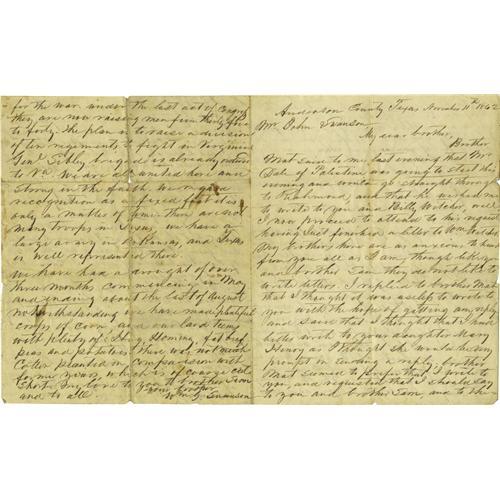 Anderson County Texas November 11th 1862
Mr. John Swanson
My dear brother,
Brother
Mat said to me last evening that Mr
Dale of Palestine was going to start this
evening and would go straight through
to Richmond, and that he wished me
to write to you and Billy Welcher, well
I now proceed to attend to his request
having just finished a letter to
My brothers here are as anxious to hear
from you all as I am, though like you
and brother Sam they do not like to
write letters. I replied to brother Mat
that I thought it was useless to write to
you with the hope of getting any reply
and said that I thought that I had
better write to your daughter Mary
as I thought she would be more
prompt in sending a reply, brother
Mat seemed to prefer that I write to
you, and requested that I should say
to you and brother Sam, and to
for the war under the last act of Congress
they are now raising men from thirty five
to forty. The plan is to raise a division
of ten regiments to fight in Virginia
Genl brigade is already
to Va. We are all united here and
strong in the faith we regard
recognition as a fixed fact it is
only a matter of time there are not
many troops in Texas, we have a
large army in Arkansas, and Texas
is well represented there.
We have had a drought of over
three months commencing in May
and ending about the last of August
notwithstanding we have made plentiful
crops of corn, and our land teems
with plenty of Hominy, fat beef
peas and potatoes. There was not much
Cotton planted in comparison with
former years which is of course cut
short. My love to you & brother Sam
and to all
your brother
Swanson